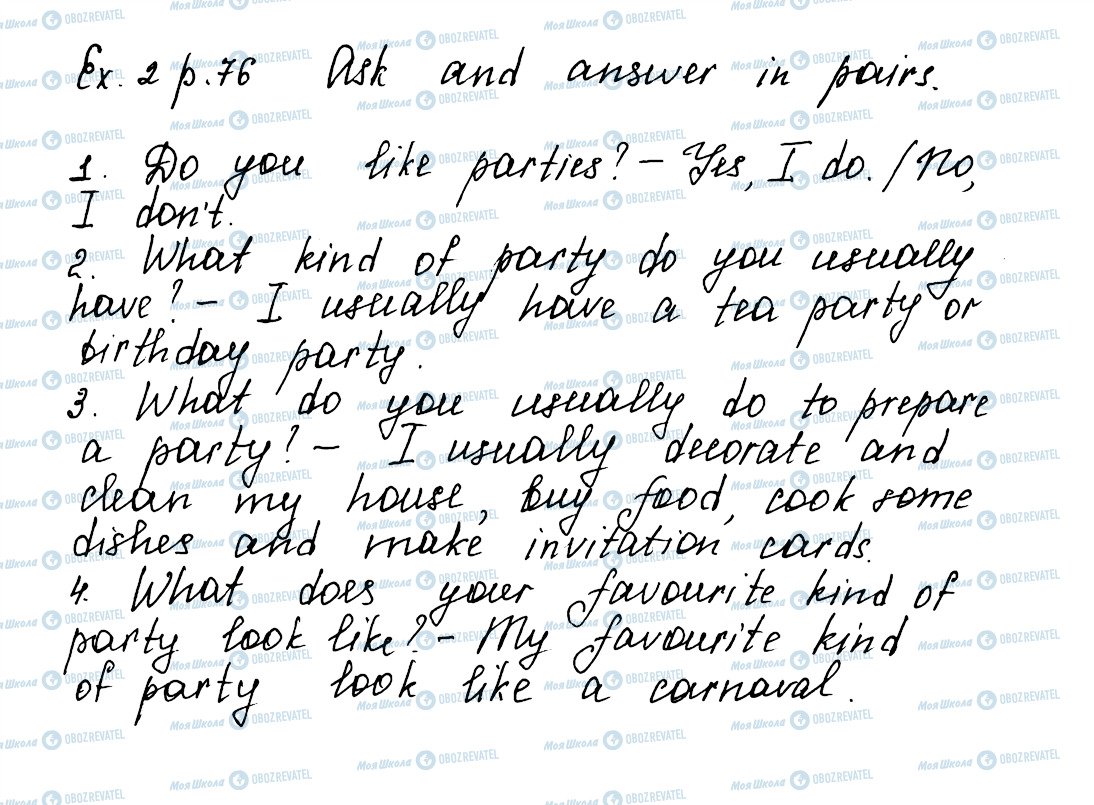 Ex. 2 p.76 Ask and answer in pairs.
1. Do you like parties? - Yes, I do. / No,
I don't.
2. What kind of party do you usually
have? - I usually have a tea party or
birthday party.
3. What do you usually do to prepare
a party? - I usually decorate and
clean my house, buy food, cook some
dishes and make invitation cards.
4. What does your favourite kind of
party look like? - My favourite kind
of party look like a carnaval.